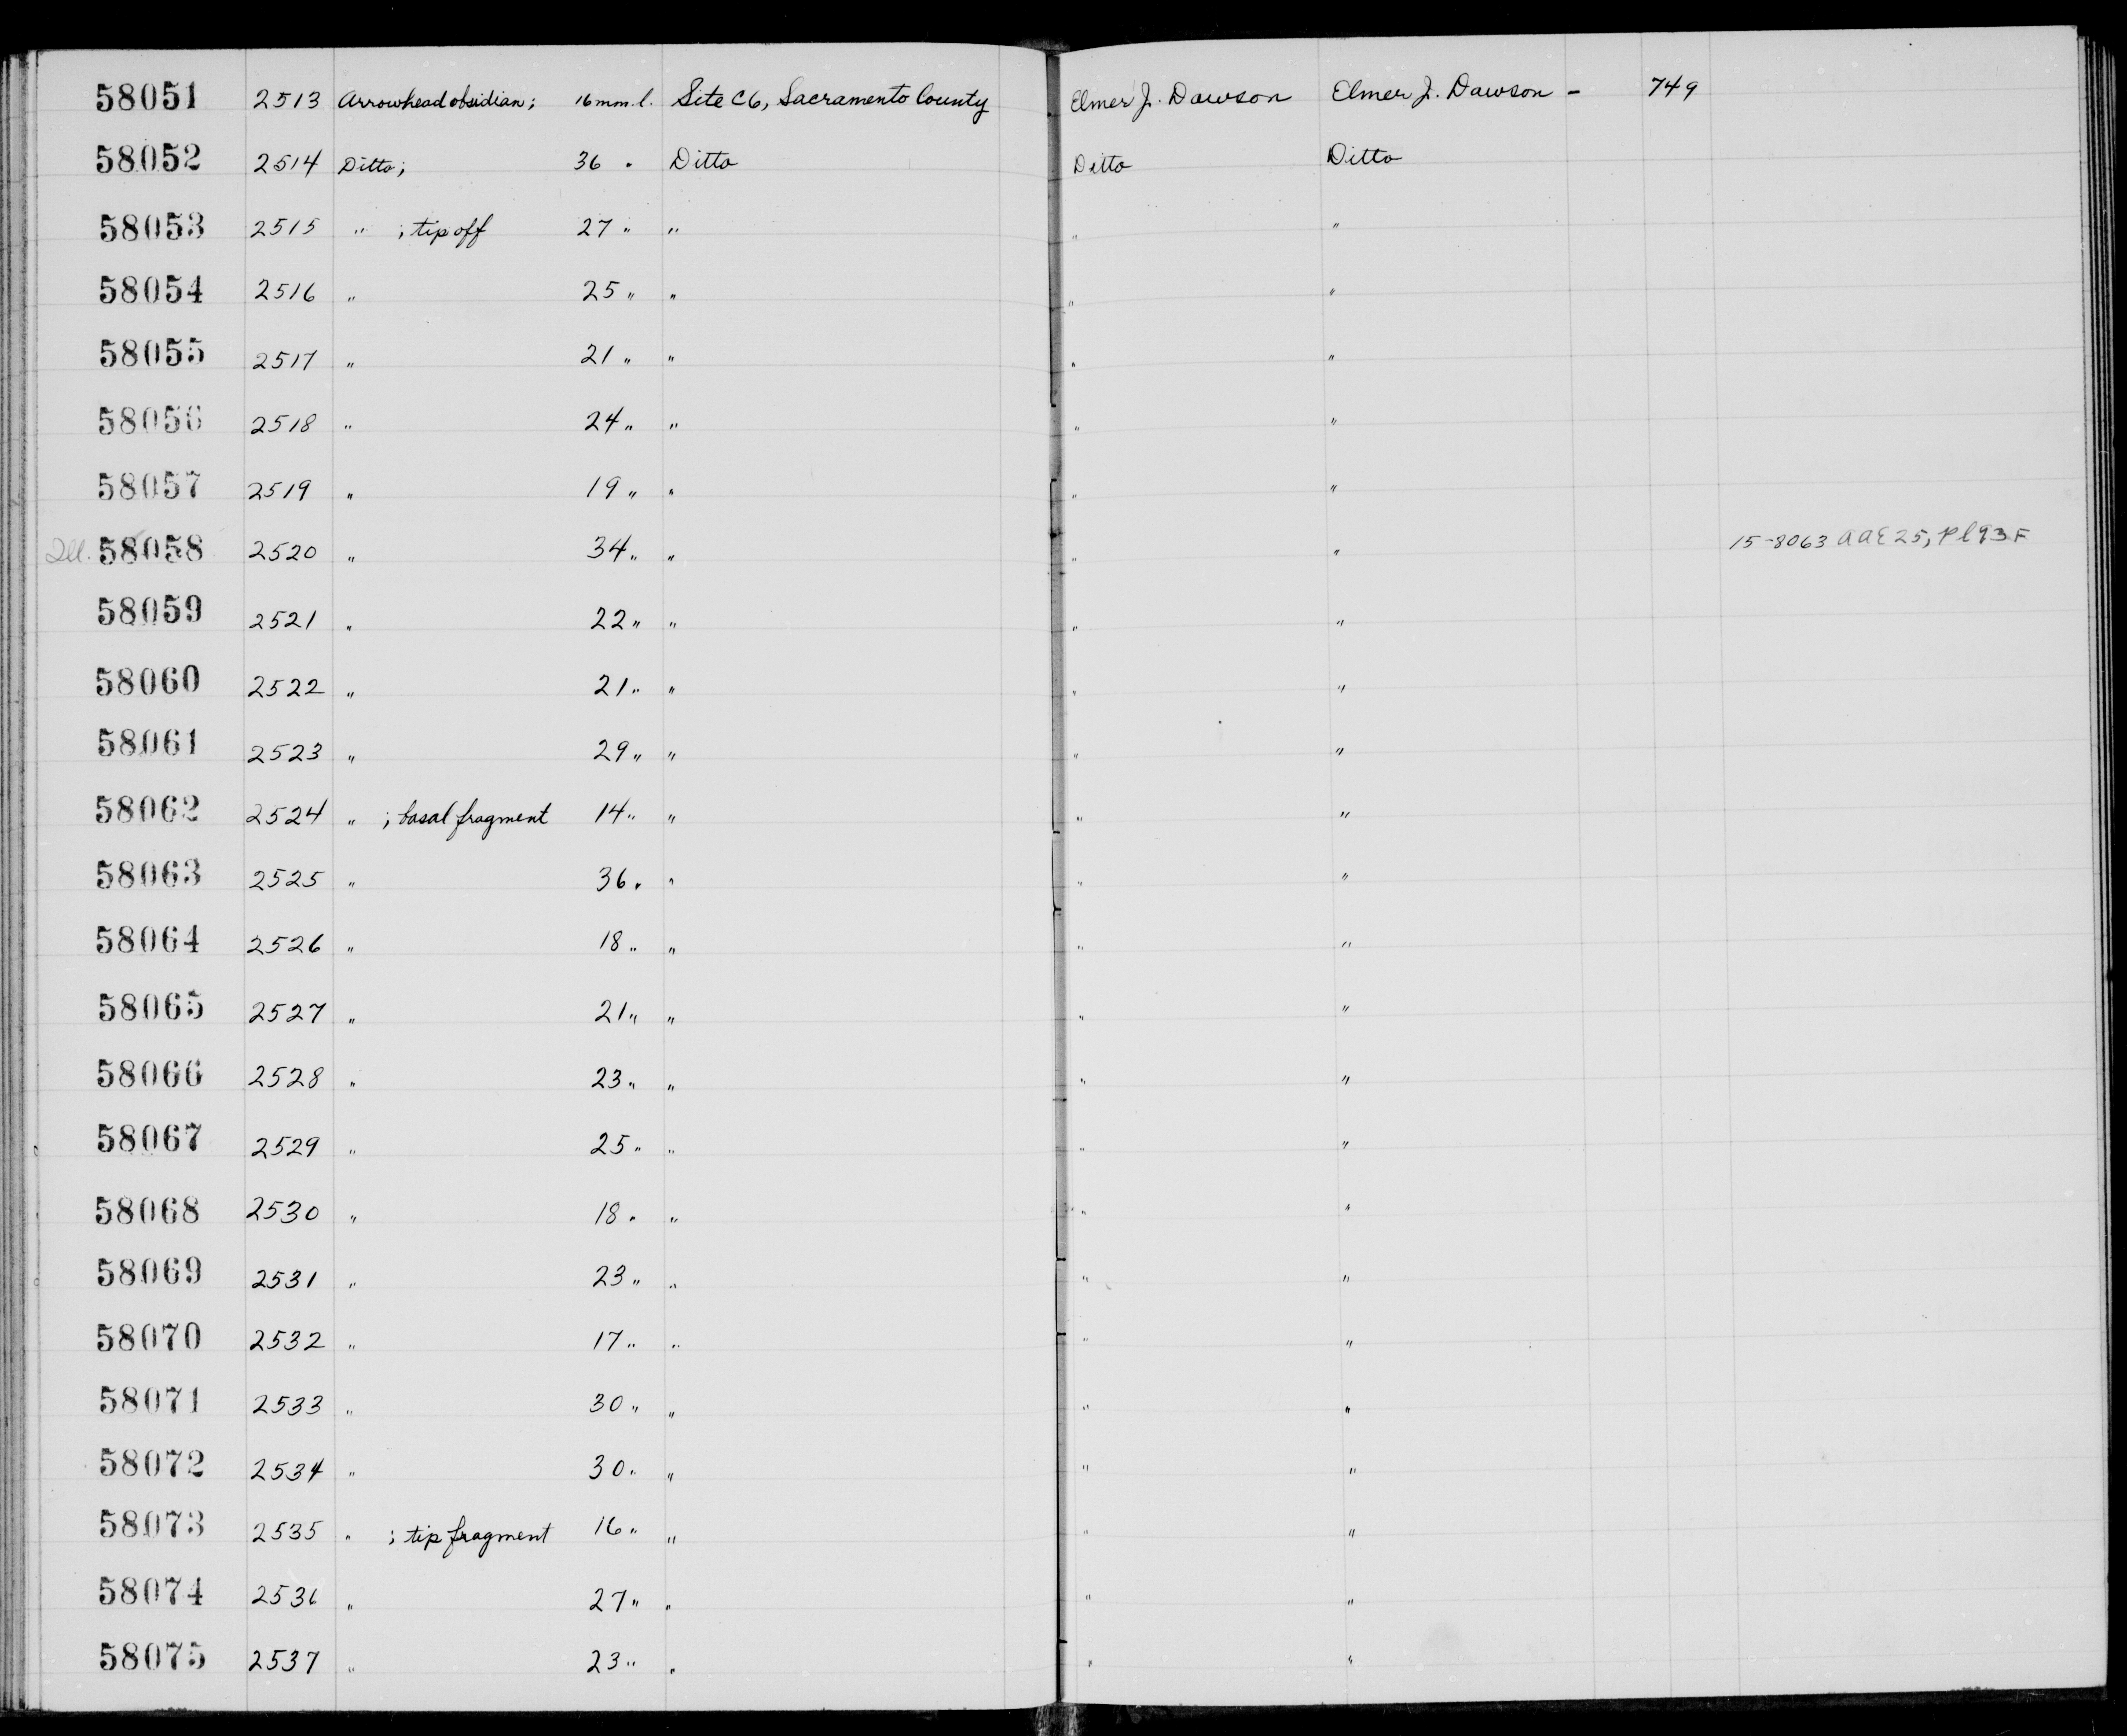 58051 2513 Arrowhead obsidian; 16 mm. l. Site C6, Sacramento County Elmer J. Dawson Elmer J. Dawson - 749
58052 2514 Ditto; 36 " Ditto Ditto Ditto
58053 2515 " ; tip off 27 " " " "
58054 2516 " 25 " " " "
58055 2517 " 21 " " " "
58056 2518 " 24 " " " "
58057 2519 " 19 " " " "
Ill. 58058 2520 " 34 " " " " 15-8063 AAE 25, Pl 93 F
58059 2521 " 22 " " " "
58060 2522 " 21 " " " "
58061 2523 " 29 " " " "
58062 2524 " ; basal fragment 14 " " " "
58063 2525 " 36 " " " "
58064 2526 " 18 " " " "
58065 2527 " 21 " " " "
58066 2528 " 23 " " " "
58067 2529 " 25 " " " "
58068 2530 " 18 " " " "
58069 2531 " 23 " " " "
58070 2532 " 17 " " " "
58071 2533 " 30 " " " "
58072 2534 " 30 " " " "
58073 2535 " ; tip fragment 16 " " " "
58074 2536 " 27 " " " "
58075 2537 " 23 " " " "